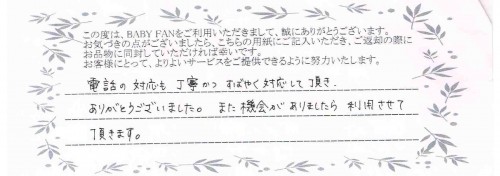 この度は、BABY FANをご利用いただきまして、誠にありがとうございます。
お気づきの点がございましたら、こちらの用紙にご記入いただき、ご返却の際に
お品物に同封していただければ幸いです。
お客様にとって、よりよいサービスをご提供できるように努力いたします。
電話の対応も丁寧かつすばやく対応して頂き、
ありがとうございました。また機会がありましたら利用させて
頂きます。